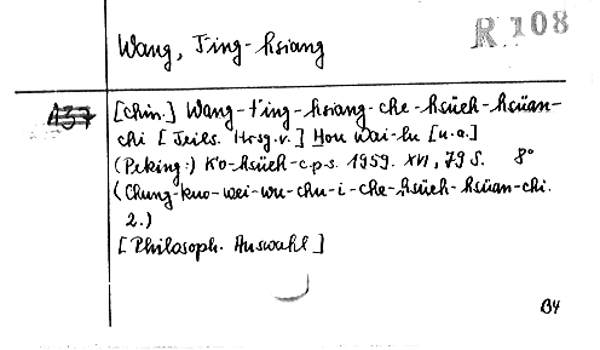 R 108
Wang, Ting-hsiang
A37
[chin.] Wang-t'ing-hsiang-che-hsüeh-hsüan-
chi [Teils. Hrsg. v.] Hou Wai-lu [u.a.]
(Peking:) K'o-hsüeh-c.p.s. 1959. XVI, 79 S. 8°
(Chung-kuo-wei-wu-chu-i-che-hsüeh-hsüan-chi.
2.)
[Philosoph. Auswahl]